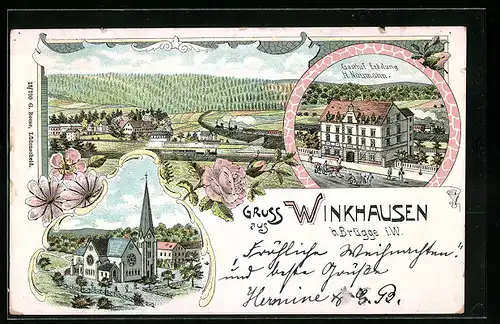 Gasthof Erholung
H. Naumann.
12700 G. Bosse, Lüdenscheid.
GRUSS
aus WINKHAUSEN
b. Brügge i. W.
"Fröhliche Weihnachten."
und beste Grüße
Hermine & E. B.